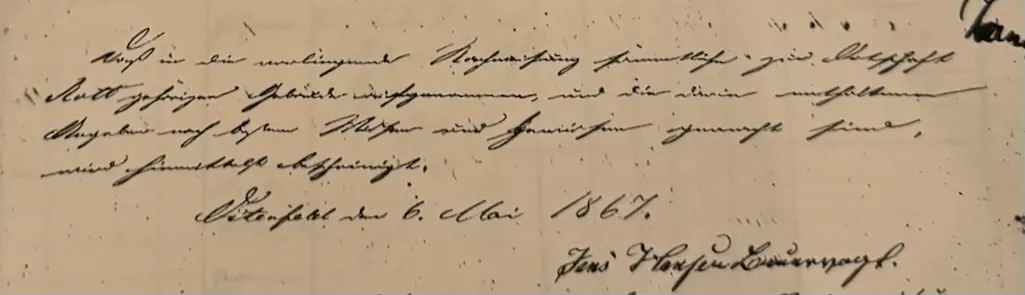 Han
Daß in die vorliegende Nachweisung sämmtliche zur Ortschaft
Rott gehörigen Gebäude aufgenommen, und die darin enthaltenen
Angaben nach bestem Wissen und Gewissen gemacht sind,
wird hiemittelst bescheinigt.
den 6. Mai 1867.
Jens Hansen Bauervogt.